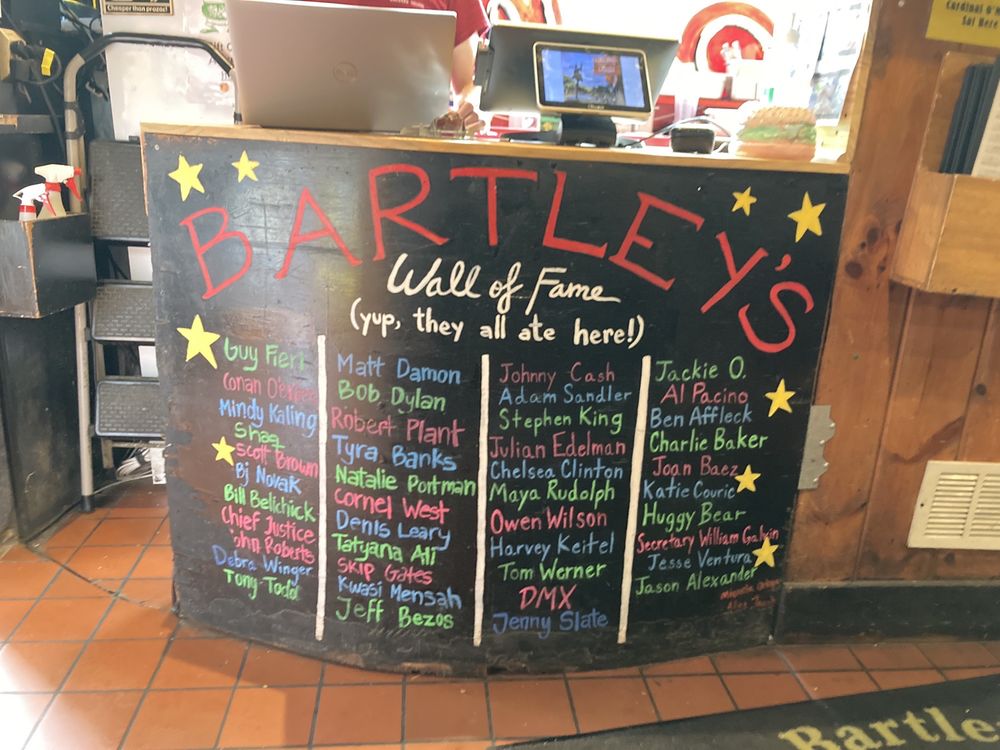 Cheaper than prozac!
Cardinal O'
Sat Here
DELL
BARTLEY'S
Wall of Fame
(yup, they all ate here!)
Guy Fieri
Conan O'Brien
Mindy Kaling
Shaq
Scott Brown
Bj Novak
Bill Belichick
Chief Justice
John Roberts
Debra Winger
Tony Todd
Matt Damon
Bob Dylan
Robert Plant
Tyra Banks
Natalie Portman
Cornel West
Denis Leary
Tatyana Ali
Skip Gates
Kwasi Mensah
Jeff Bezos
Johnny Cash
Adam Sandler
Stephen King
Julian Edelman
Chelsea Clinton
Maya Rudolph
Owen Wilson
Harvey Keitel
Tom Werner
DMX
Jenny Slate
Jackie O.
Al Pacino
Ben Affleck
Charlie Baker
Joan Baez
Katie Couric
Huggy Bear
Secretary William Galvin
Jesse Ventura
Jason Alexander
Bartle